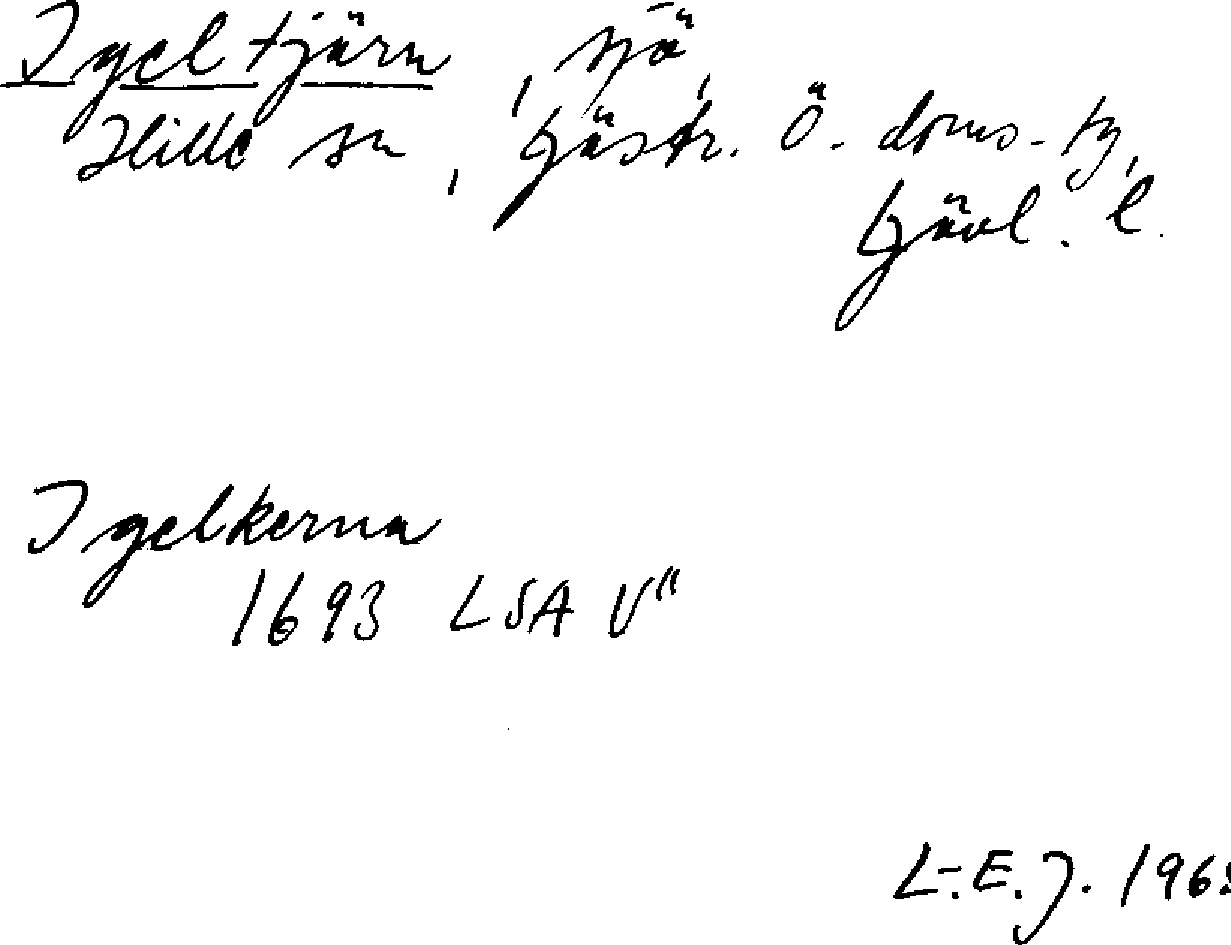 Igeltjärn, sjö,
Hille sn, Gästr. Ö. doms-tg,
Gävl. l.
Igelkerna
1693 LSA V"
L-E.J.